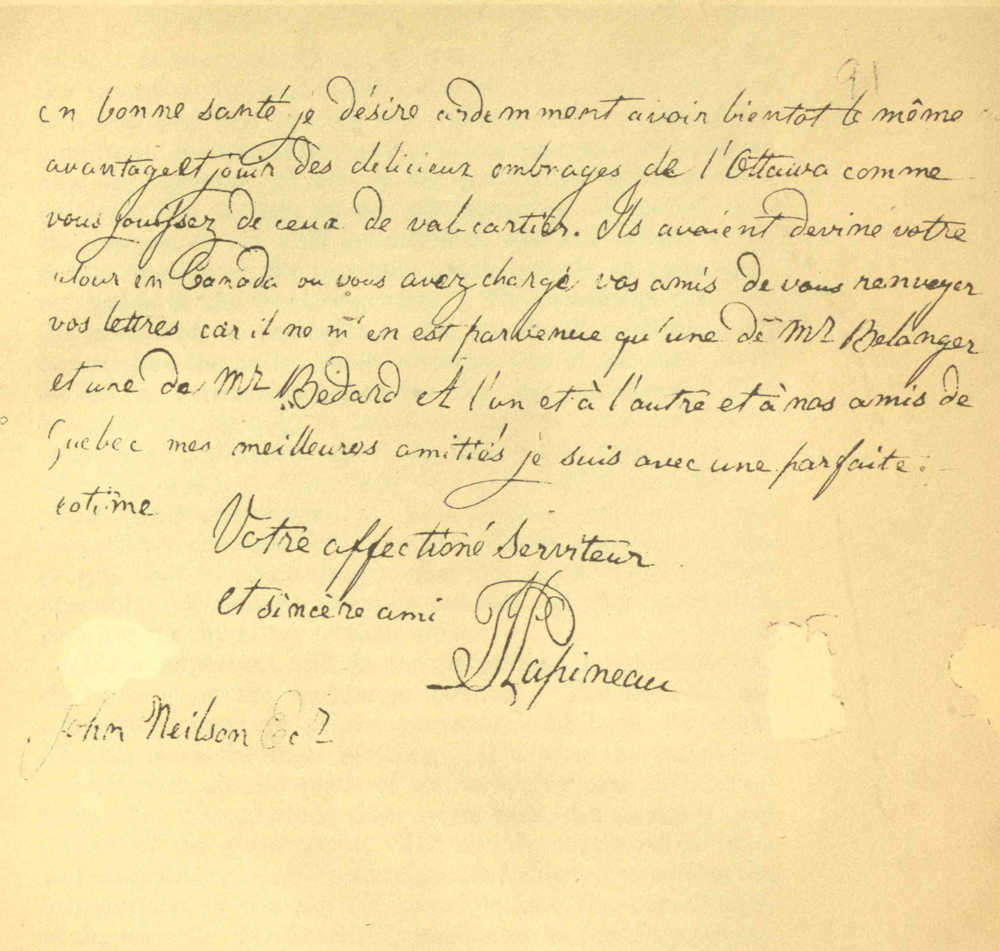 91
en bonne santé je désire ardemment avoir bientot le même
avantage et jouir des delicieux ombrages de l'Ottawa comme
vous jouissez de ceux de valcartier. Ils avaient deviné votre
retour en Canada ou vous avez chargé vos amis de vous renvoyer
vos lettres car il ne m'en est parvenue qu'une de Mr Belanger
et une de Mr Bedard A l'un et à l'autre et à nos amis de
Quebec mes meilleures amitiés je suis avec une parfaite
estime
Votre affectioné Serviteur
et sincère ami
LJPapineau
John Neilson Ecr